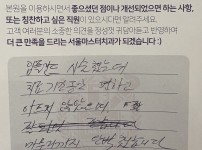 본원을 이용하시면서 좋으셨던 점이나 개선되었으면 하는 사항,
또는 칭찬하고 싶은 직원이 있으시다면 알려주세요.
고객 여러분의 소중한 의견을 정성껏 귀담아듣고 반영하여
더 큰 만족을 드리는 서울마스터치과가 되겠습니다 :)
임플란트 시술 했는데
치료기간동안 편하고
아프지 않았으며